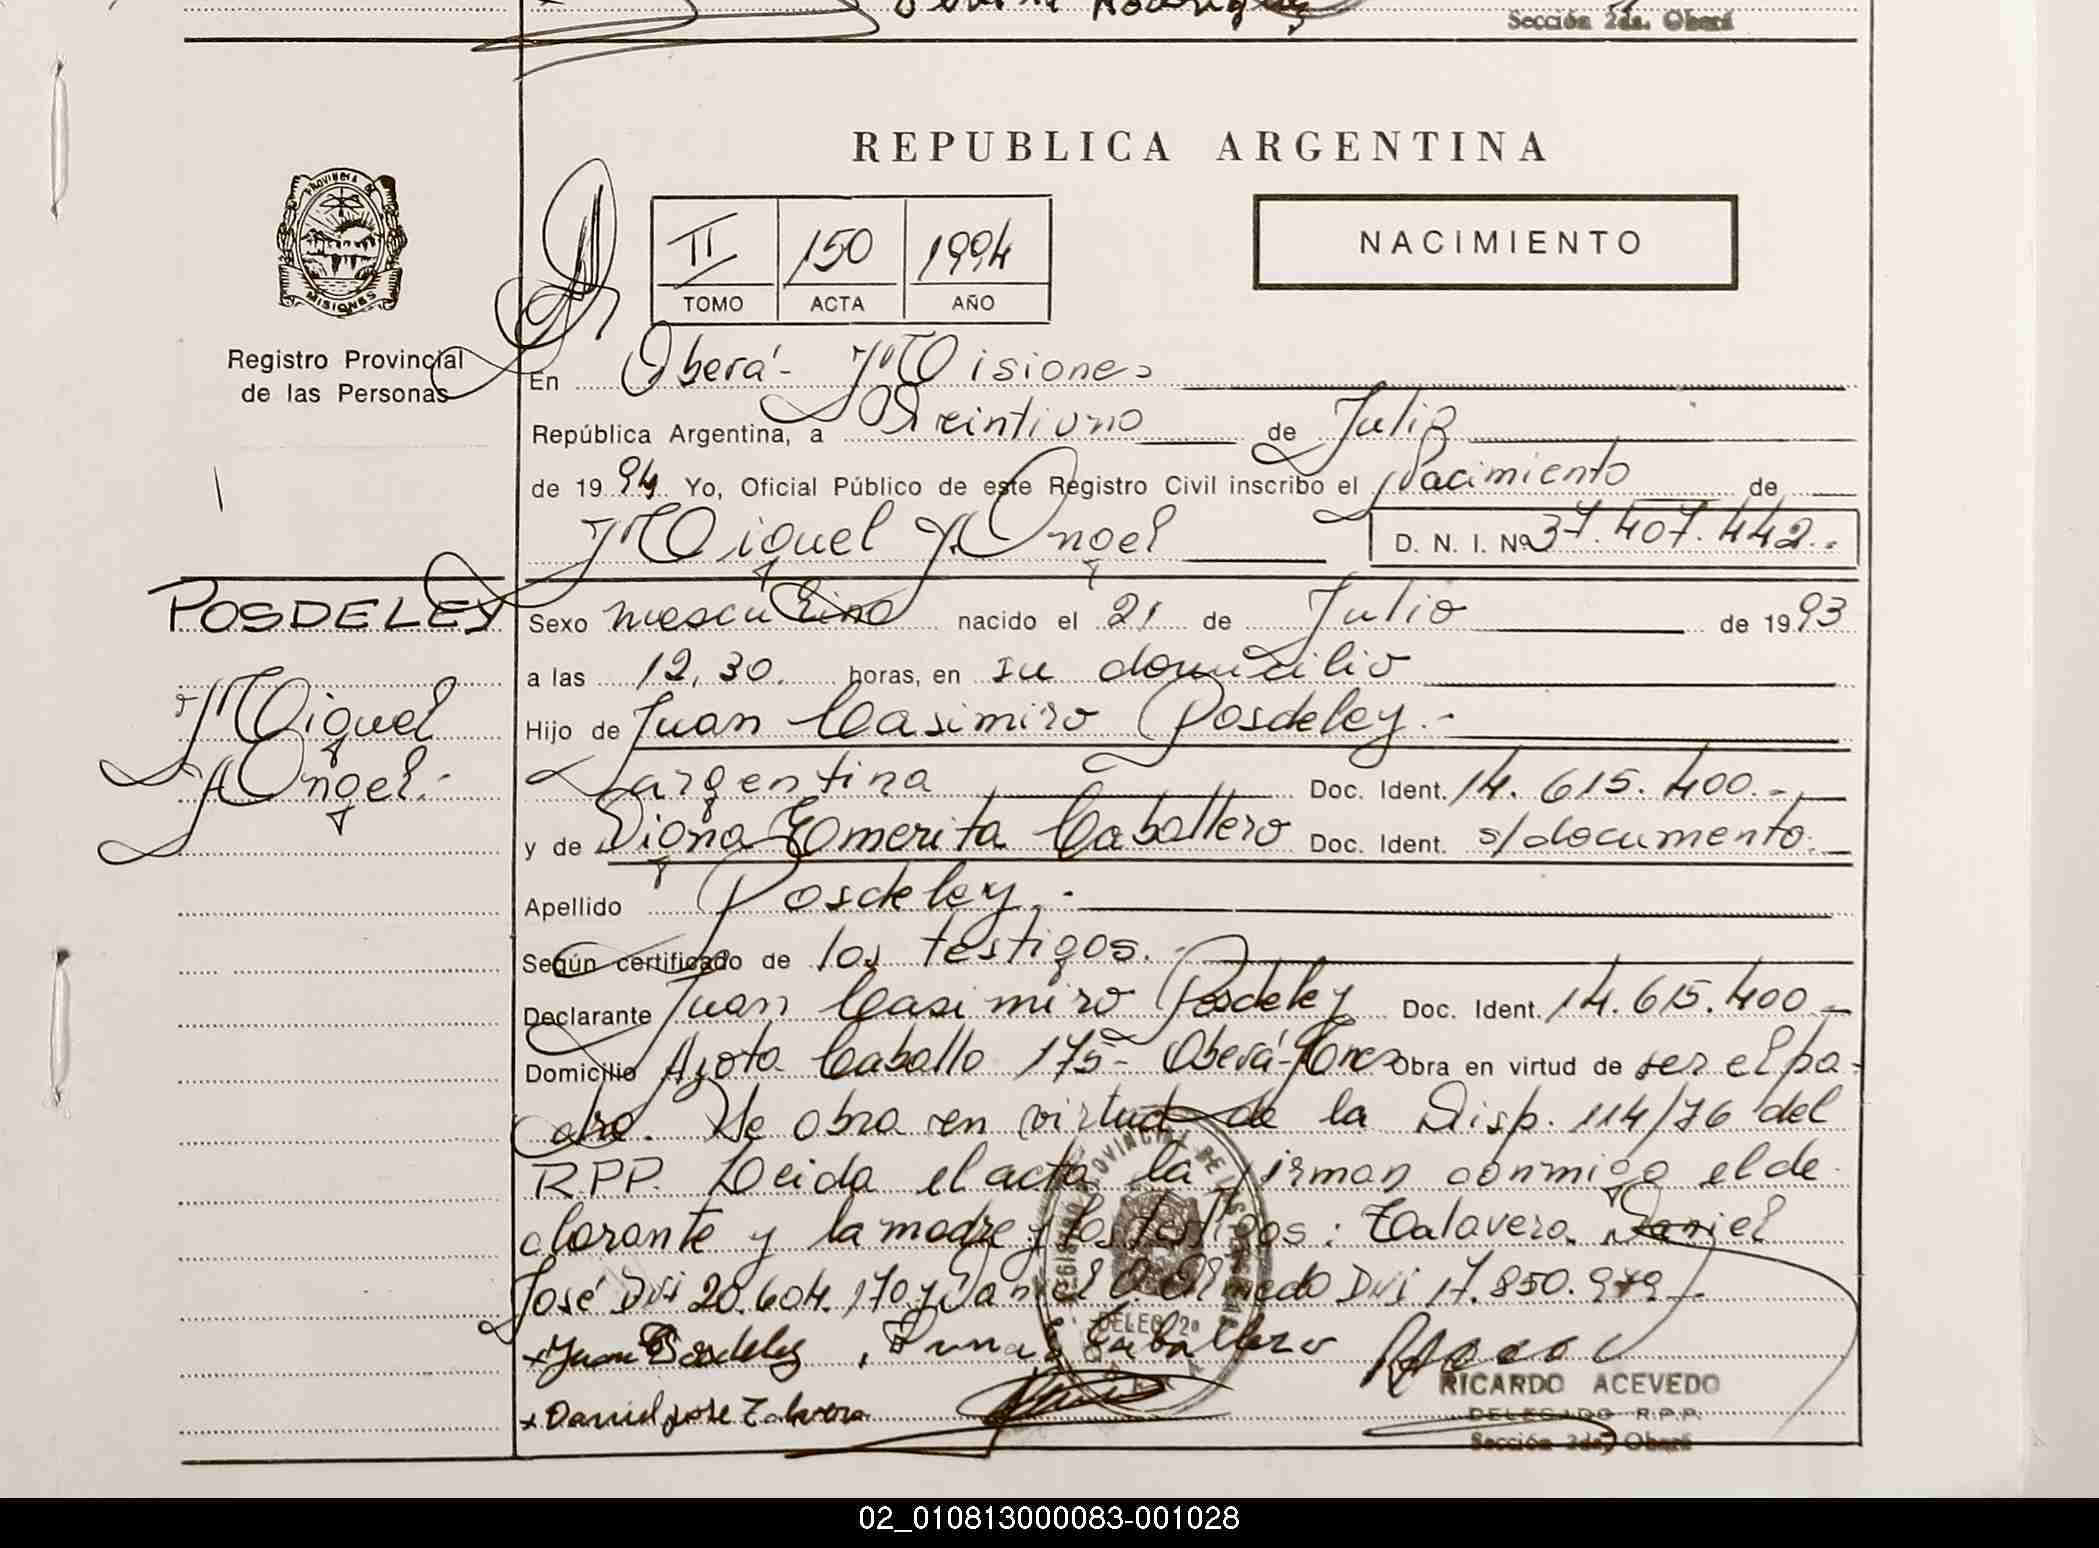 Sección 2da. Oberá
REPUBLICA ARGENTINA
PROVINCIA DE
MISIONES
Registro Provincial
de las Personas
II 150 1994
TOMO ACTA AÑO
NACIMIENTO
En Oberá - Misiones
República Argentina, a Veintiuno de Julio
de 1994 Yo, Oficial Público de este Registro Civil inscribo el Nacimiento de
Miguel Angel D. N. I. Nº 37.407.442.-
POSDELEY
Miguel
Angel.-
Sexo masculino nacido el 21 de Julio de 1993
a las 12,30. horas, en su domicilio
Hijo de Juan Casimiro Posdeley.-
argentina Doc. Ident. 14.615.400.-
y de Digna Emerita Caballero Doc. Ident. s/documento.
Apellido Posdeley.-
Según certificado de los testigos.-
Declarante Juan Casimiro Posdeley Doc. Ident. 14.615.400.-
Domicilio Azota Caballo 175- Oberá-Mnes Obra en virtud de ser el pa-
dre. Se obra en virtud de la Disp. 114/76 del
RPP. Leida el acta la firman conmigo el de-
clarante y la madre y los testigos: Talavera Daniel
José DNI 20.604.170 y Daniel O. Olmedo DNI 17.850.979.-
x Juan C Posdeley Caballero
x Daniel jose Talavera
RICARDO ACEVEDO
DELEGADO R.P.P.
Sección 2da, Oberá
02_010813000083-001028